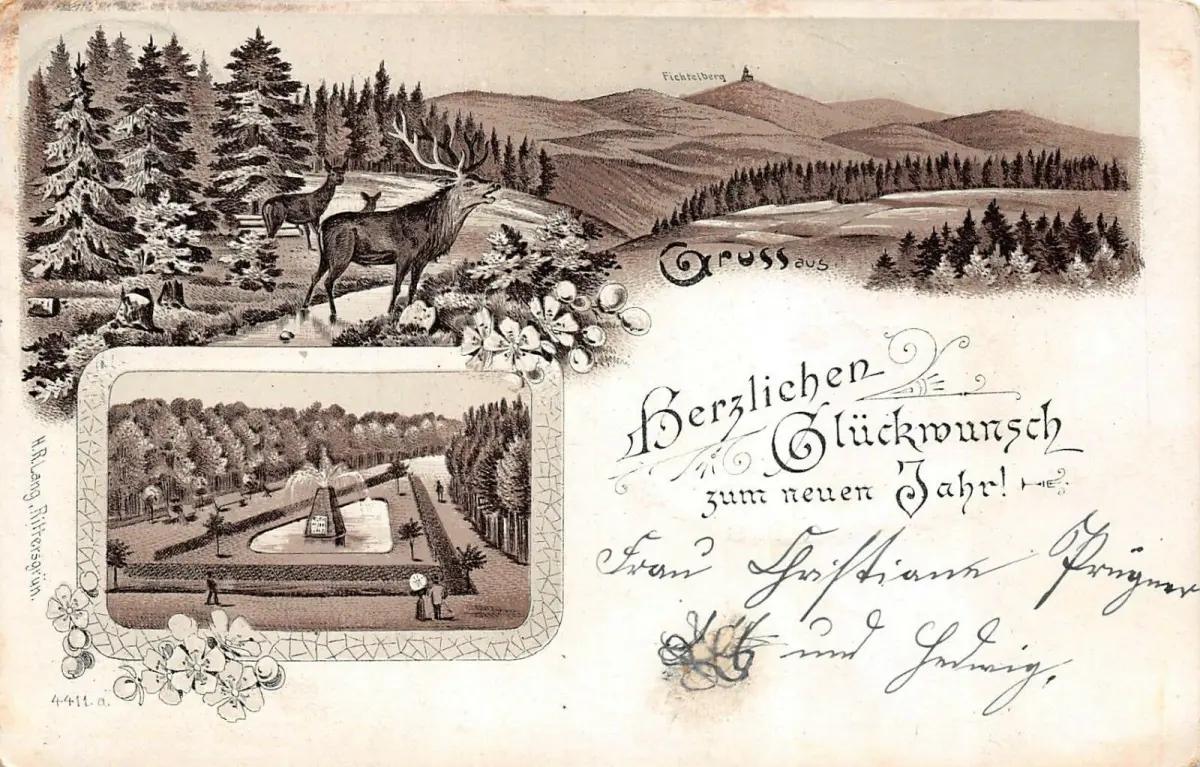 Fichtelberg
Gruss aus
Herzlichen
Glückwunsch
zum neuen Jahr!
Frau Christiane Prügner
und Hedwig.
H.R.Lang, Rittersgrün.
4411.a.